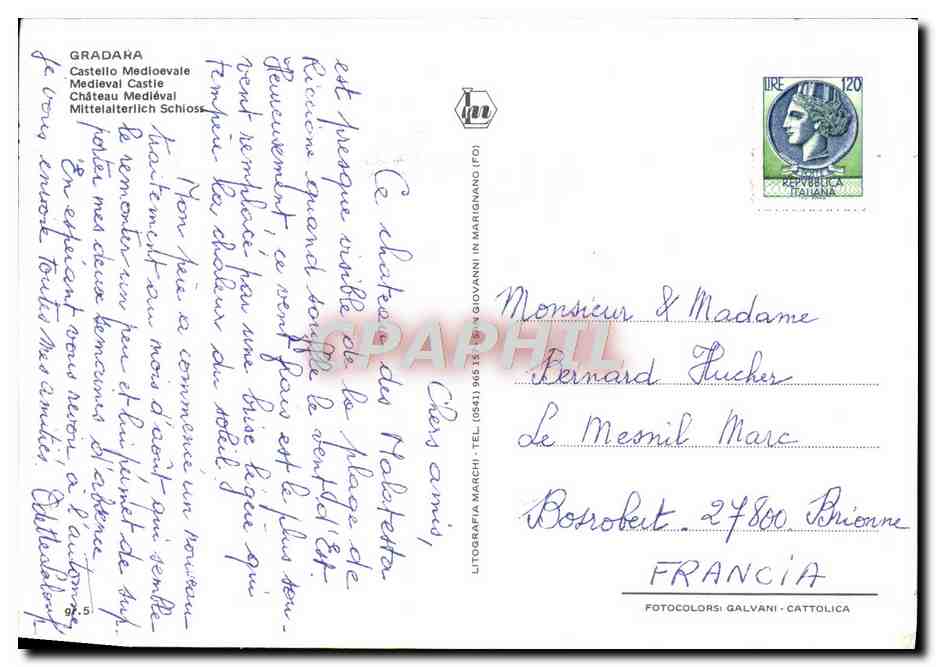 GRADARA
Castello Medioevale
Medieval Castle
Château Mediéval
Mittelalterlich Schloss
Chers amis,
Ce chateau des Malatesta
est presque visible de la plage de
Riccione quand souffle le vent d'Est.
Heureusement, ce vent frais est le plus sou-
vent remplacé par une brise légère qui
tempère la chaleur du soleil!
Mon père a commencé un nouveau
traitement au mois d'août qui semble
le remonter un peu et lui permet de sup-
porter mes deux semaines d'absence.
En espérant vous revoir à l'automne,
je vous envoie toutes mes amitiés.
gr. 5
LITOGRAFIA MARCHI - TEL. (0541) 965 15 - SAN GIOVANNI IN MARIGNANO (FO)
LIRE 120
REPVBBLICA
ITALIANA
Monsieur & Madame
Bernard Hucher
Le Mesnil Marc
Bosrobert - 27800 Brionne
FRANCIA
FOTOCOLORS: GALVANI - CATTOLICA
CPAPHIL